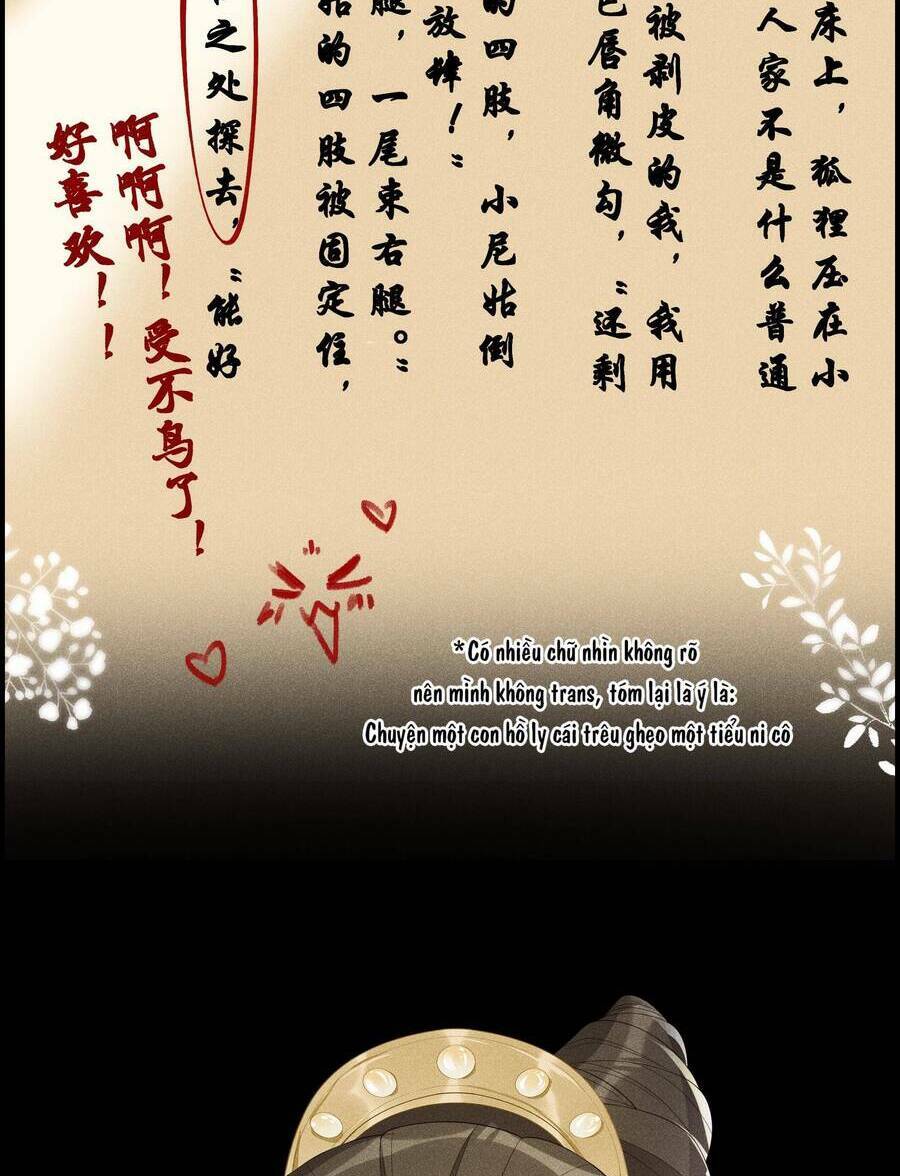 床上，狐狸压在小
人家不是什么普通
被剥皮的我，我用
已唇角微勾，“还剩
的四肢，小尼姑倒
放肆！”
腿，一尾束右腿。”
的四肢被固定住，
之处探去，“能好
啊啊啊！受不鸟了！
好喜欢！！
*Có nhiều chữ nhìn không rõ
nên mình không trans, tóm lại là ý là:
Chuyện một con hồ ly cái trêu ghẹo một tiểu ni cô